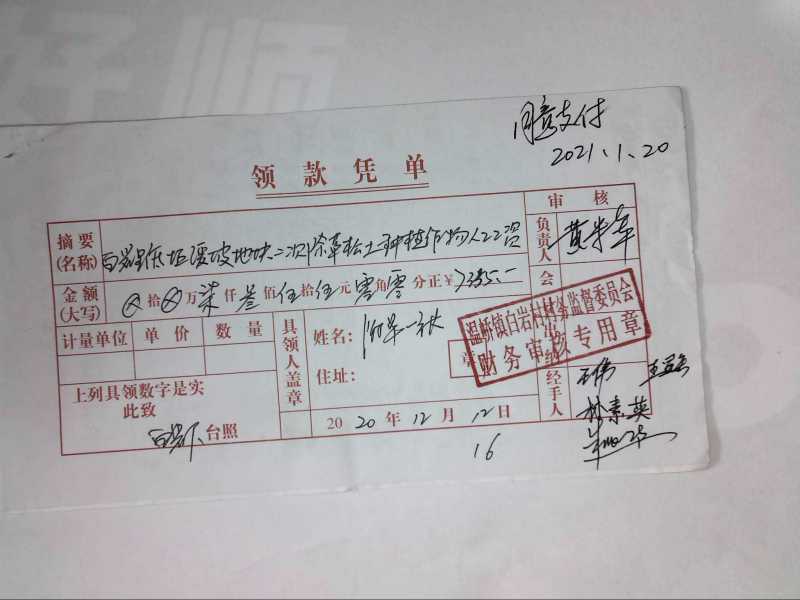 好顺
同意支付
2021.1.20
领款凭单
审核
摘要(名称)
白岩 低坵缓坡地块二次除草松土种植作物人工工资
负责人
金额(大写) ⊗拾⊗万柒仟叁佰伍拾伍元零角零分正¥7355.—
会
计量单位 单价 数量
具领人盖章
姓名: 附单一张
章
住址:
温桥镇白岩村村务监督委员会
财务审核专用章
上列具领数字是实
此致
白岩下 台照
2020年12月12日
经手人
林素英
16